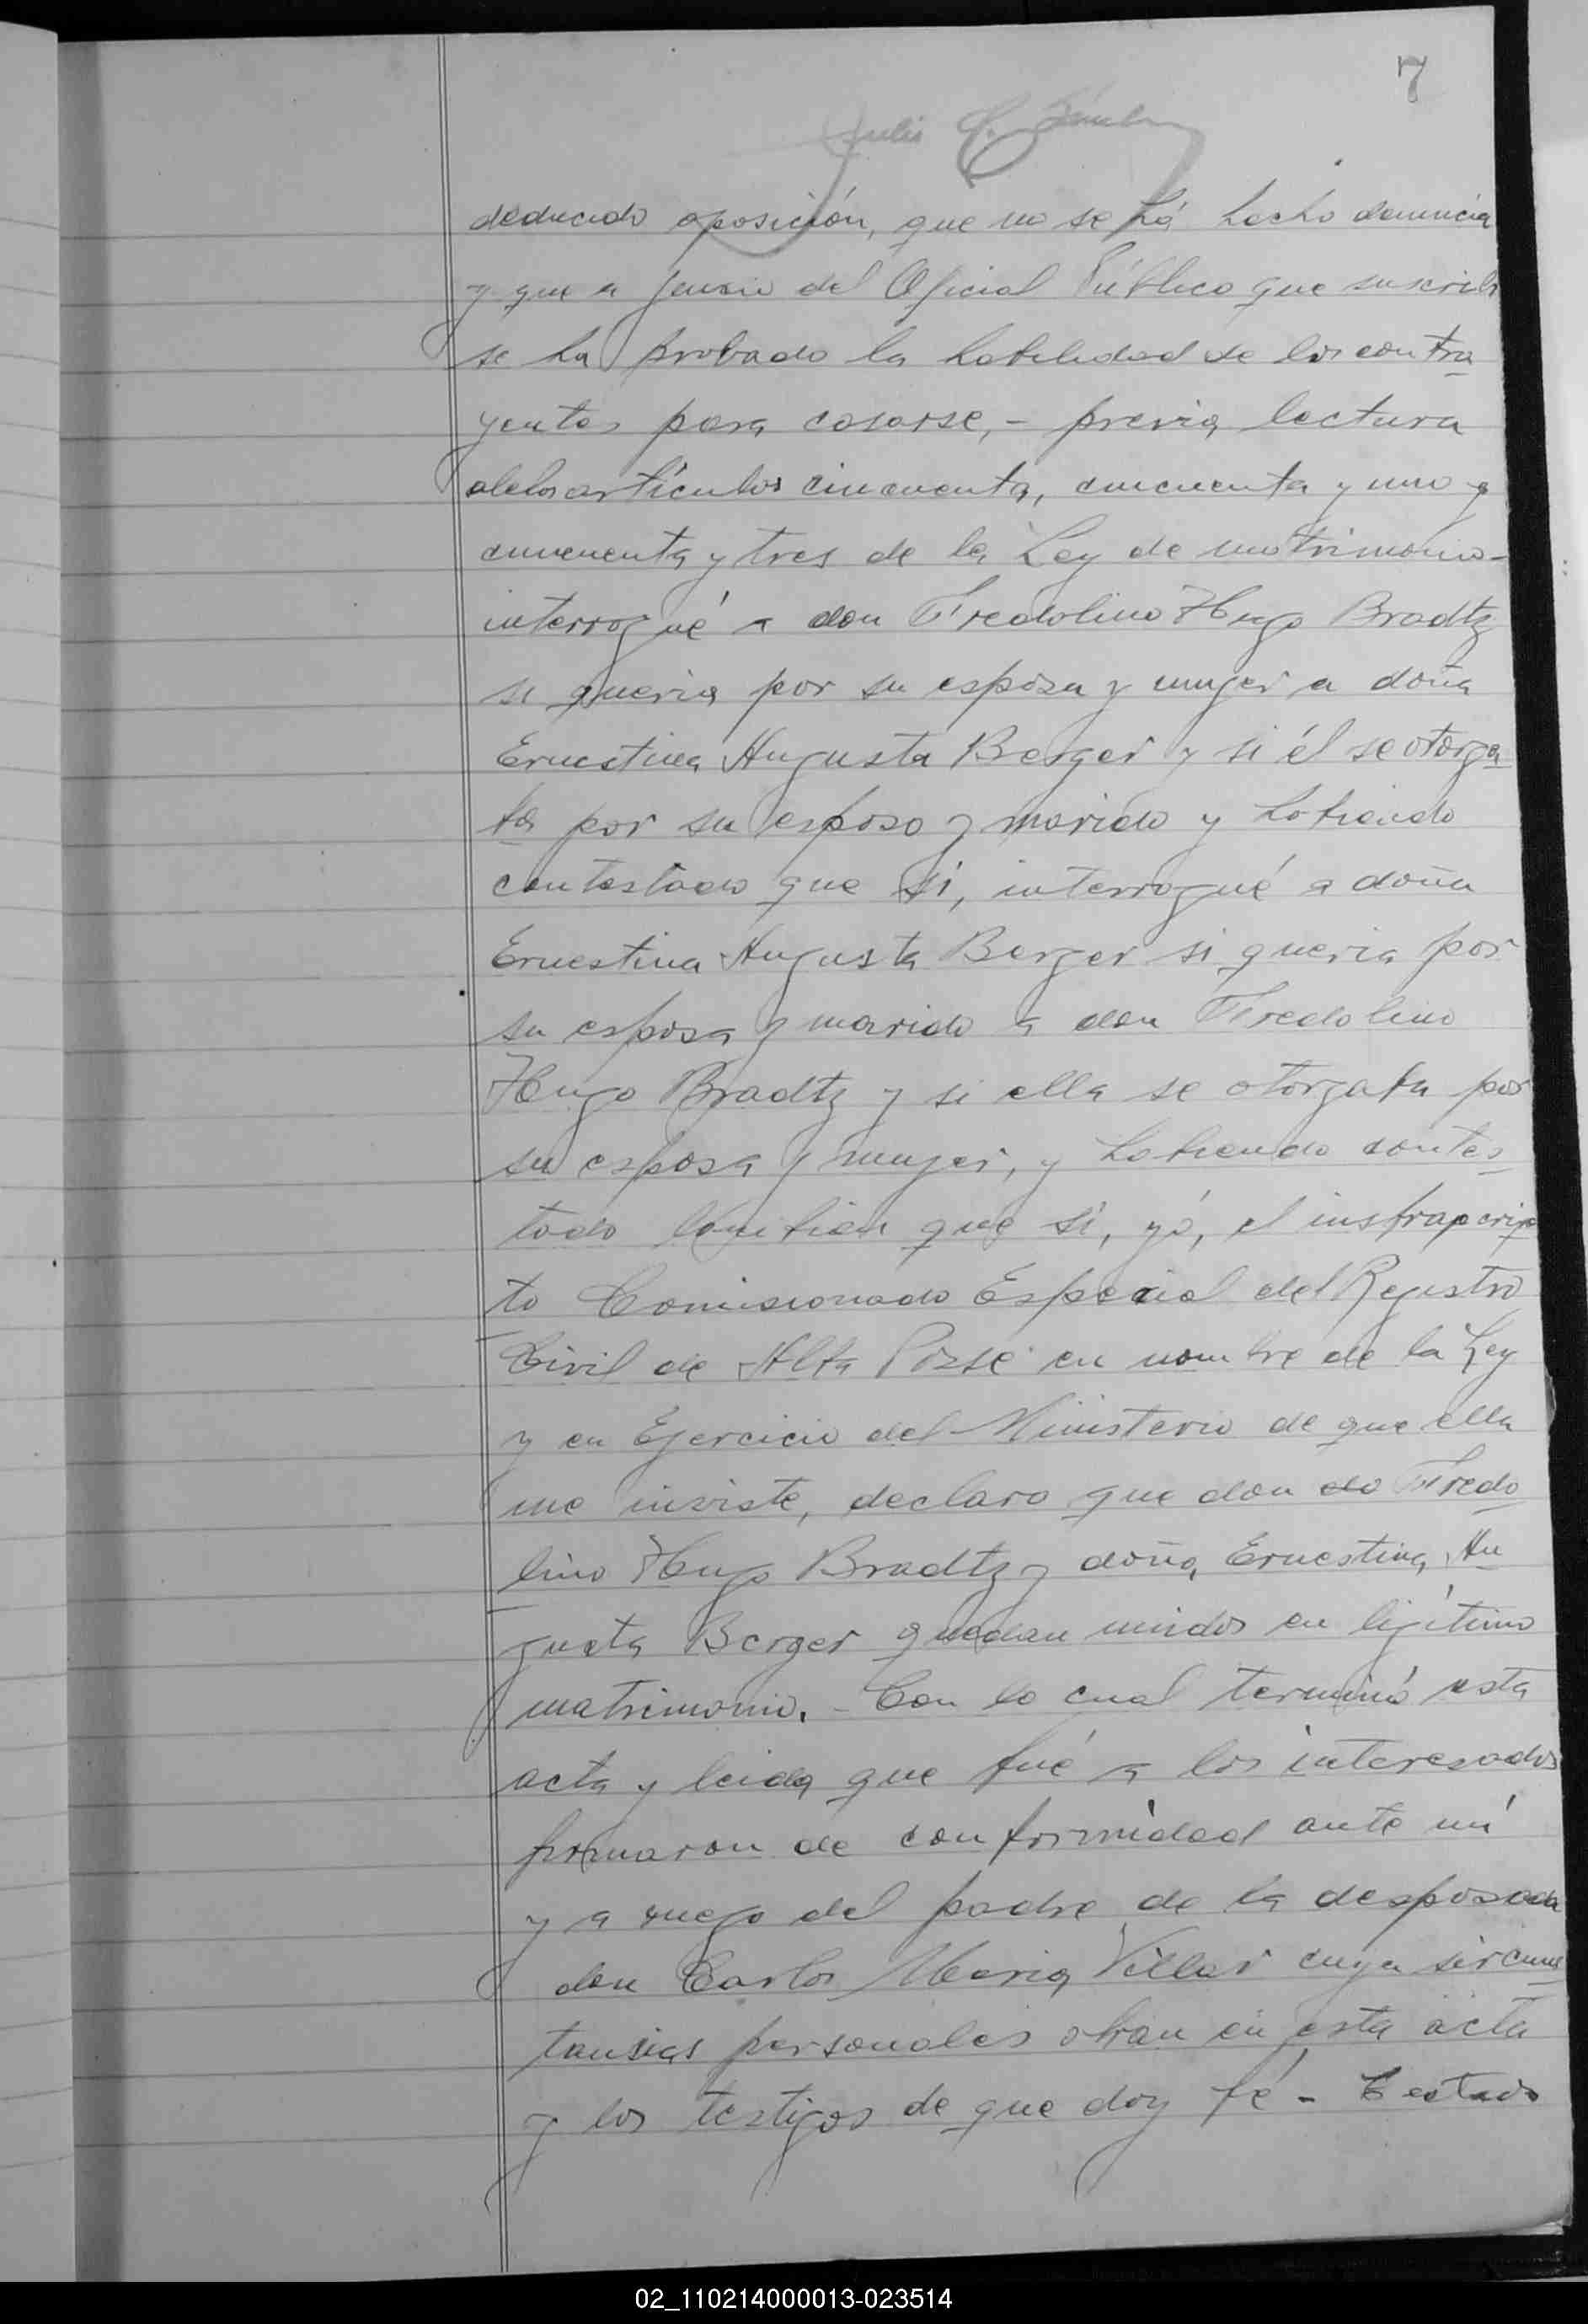 7
Julio C. Sánchez
deducido oposición, que no se há hecho denuncia
y que a juisio del Oficial Público que suscribe
se ha probado la habilidad de los contra
yentes para casarse, - previa lectura
de los artículos cincuenta, cincuenta y uno y
cincuenta y tres de la Ley de matrimonio-
interrogué a don Fredolino Hugo Bradtz
si queria por su esposa y mujer a doña
Ernestina Augusta Berger y si él se otorga
ba por su esposo y marido y habiendo
contestado que si, interrogué a doña
Ernestina Augusta Berger si queria por
su esposa y marido a don Fredolino
Hugo Bradtz y si ella se otorgaba por
su esposa y mujer, y habiendo contes
tado tambien que si, yó, el insfrascrip
to Comisionado Especial del Registro
Civil de Alta Posse en nombre de la Ley
y en Ejercicio del Ministerio de que ella
me inviste, declaro que don do Fredo
lino Hugo Bradtz y doña Ernestina Au
gusta Berger quedan unidos en ligítimo
matrimonio. - Con lo cual terminó esta
acta y leida que fué a los interesados
firmaron de conformidad ante mí
y a ruego del padre de la desposada
don Carlos Maria Villar cuya sircuns
tansias personales obran en esta acta
y los testigos de que doy fé - Testado
02_110214000013-023514